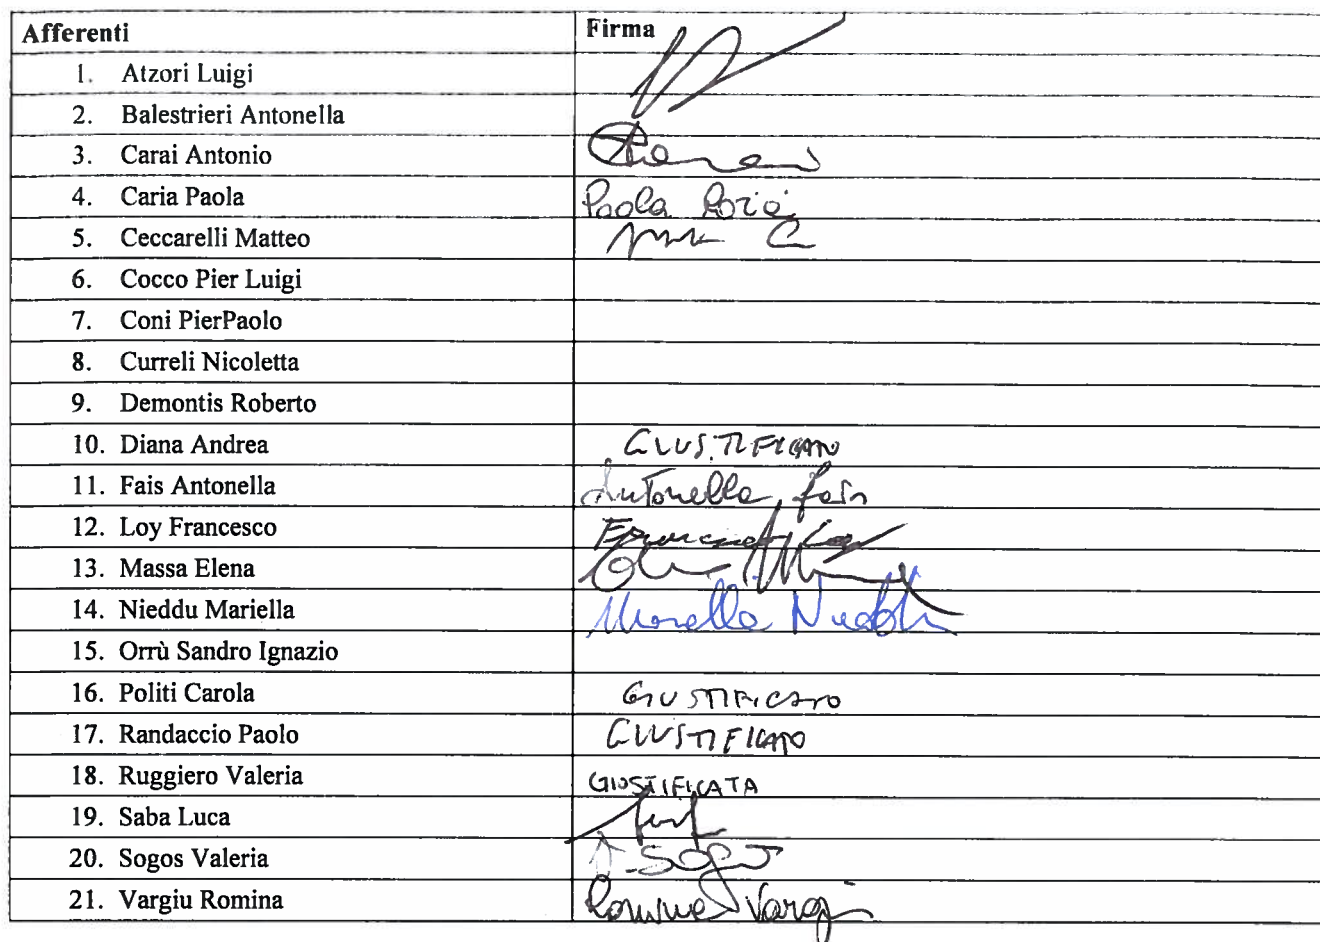 Afferenti Firma
1. Atzori Luigi
2. Balestrieri Antonella
3. Carai Antonio
4. Caria Paola Paola Caria
5. Ceccarelli Matteo
6. Cocco Pier Luigi
7. Coni PierPaolo
8. Curreli Nicoletta
9. Demontis Roberto
10. Diana Andrea GIUSTIFICATO
11. Fais Antonella Antonella Fais
12. Loy Francesco Francesco Loy
13. Massa Elena
14. Nieddu Mariella Mariella Nieddu
15. Orrù Sandro Ignazio
16. Politi Carola GIUSTIFICATO
17. Randaccio Paolo GIUSTIFICATO
18. Ruggiero Valeria GIUSTIFICATA
19. Saba Luca
20. Sogos Valeria
21. Vargiu Romina Romina Vargiu